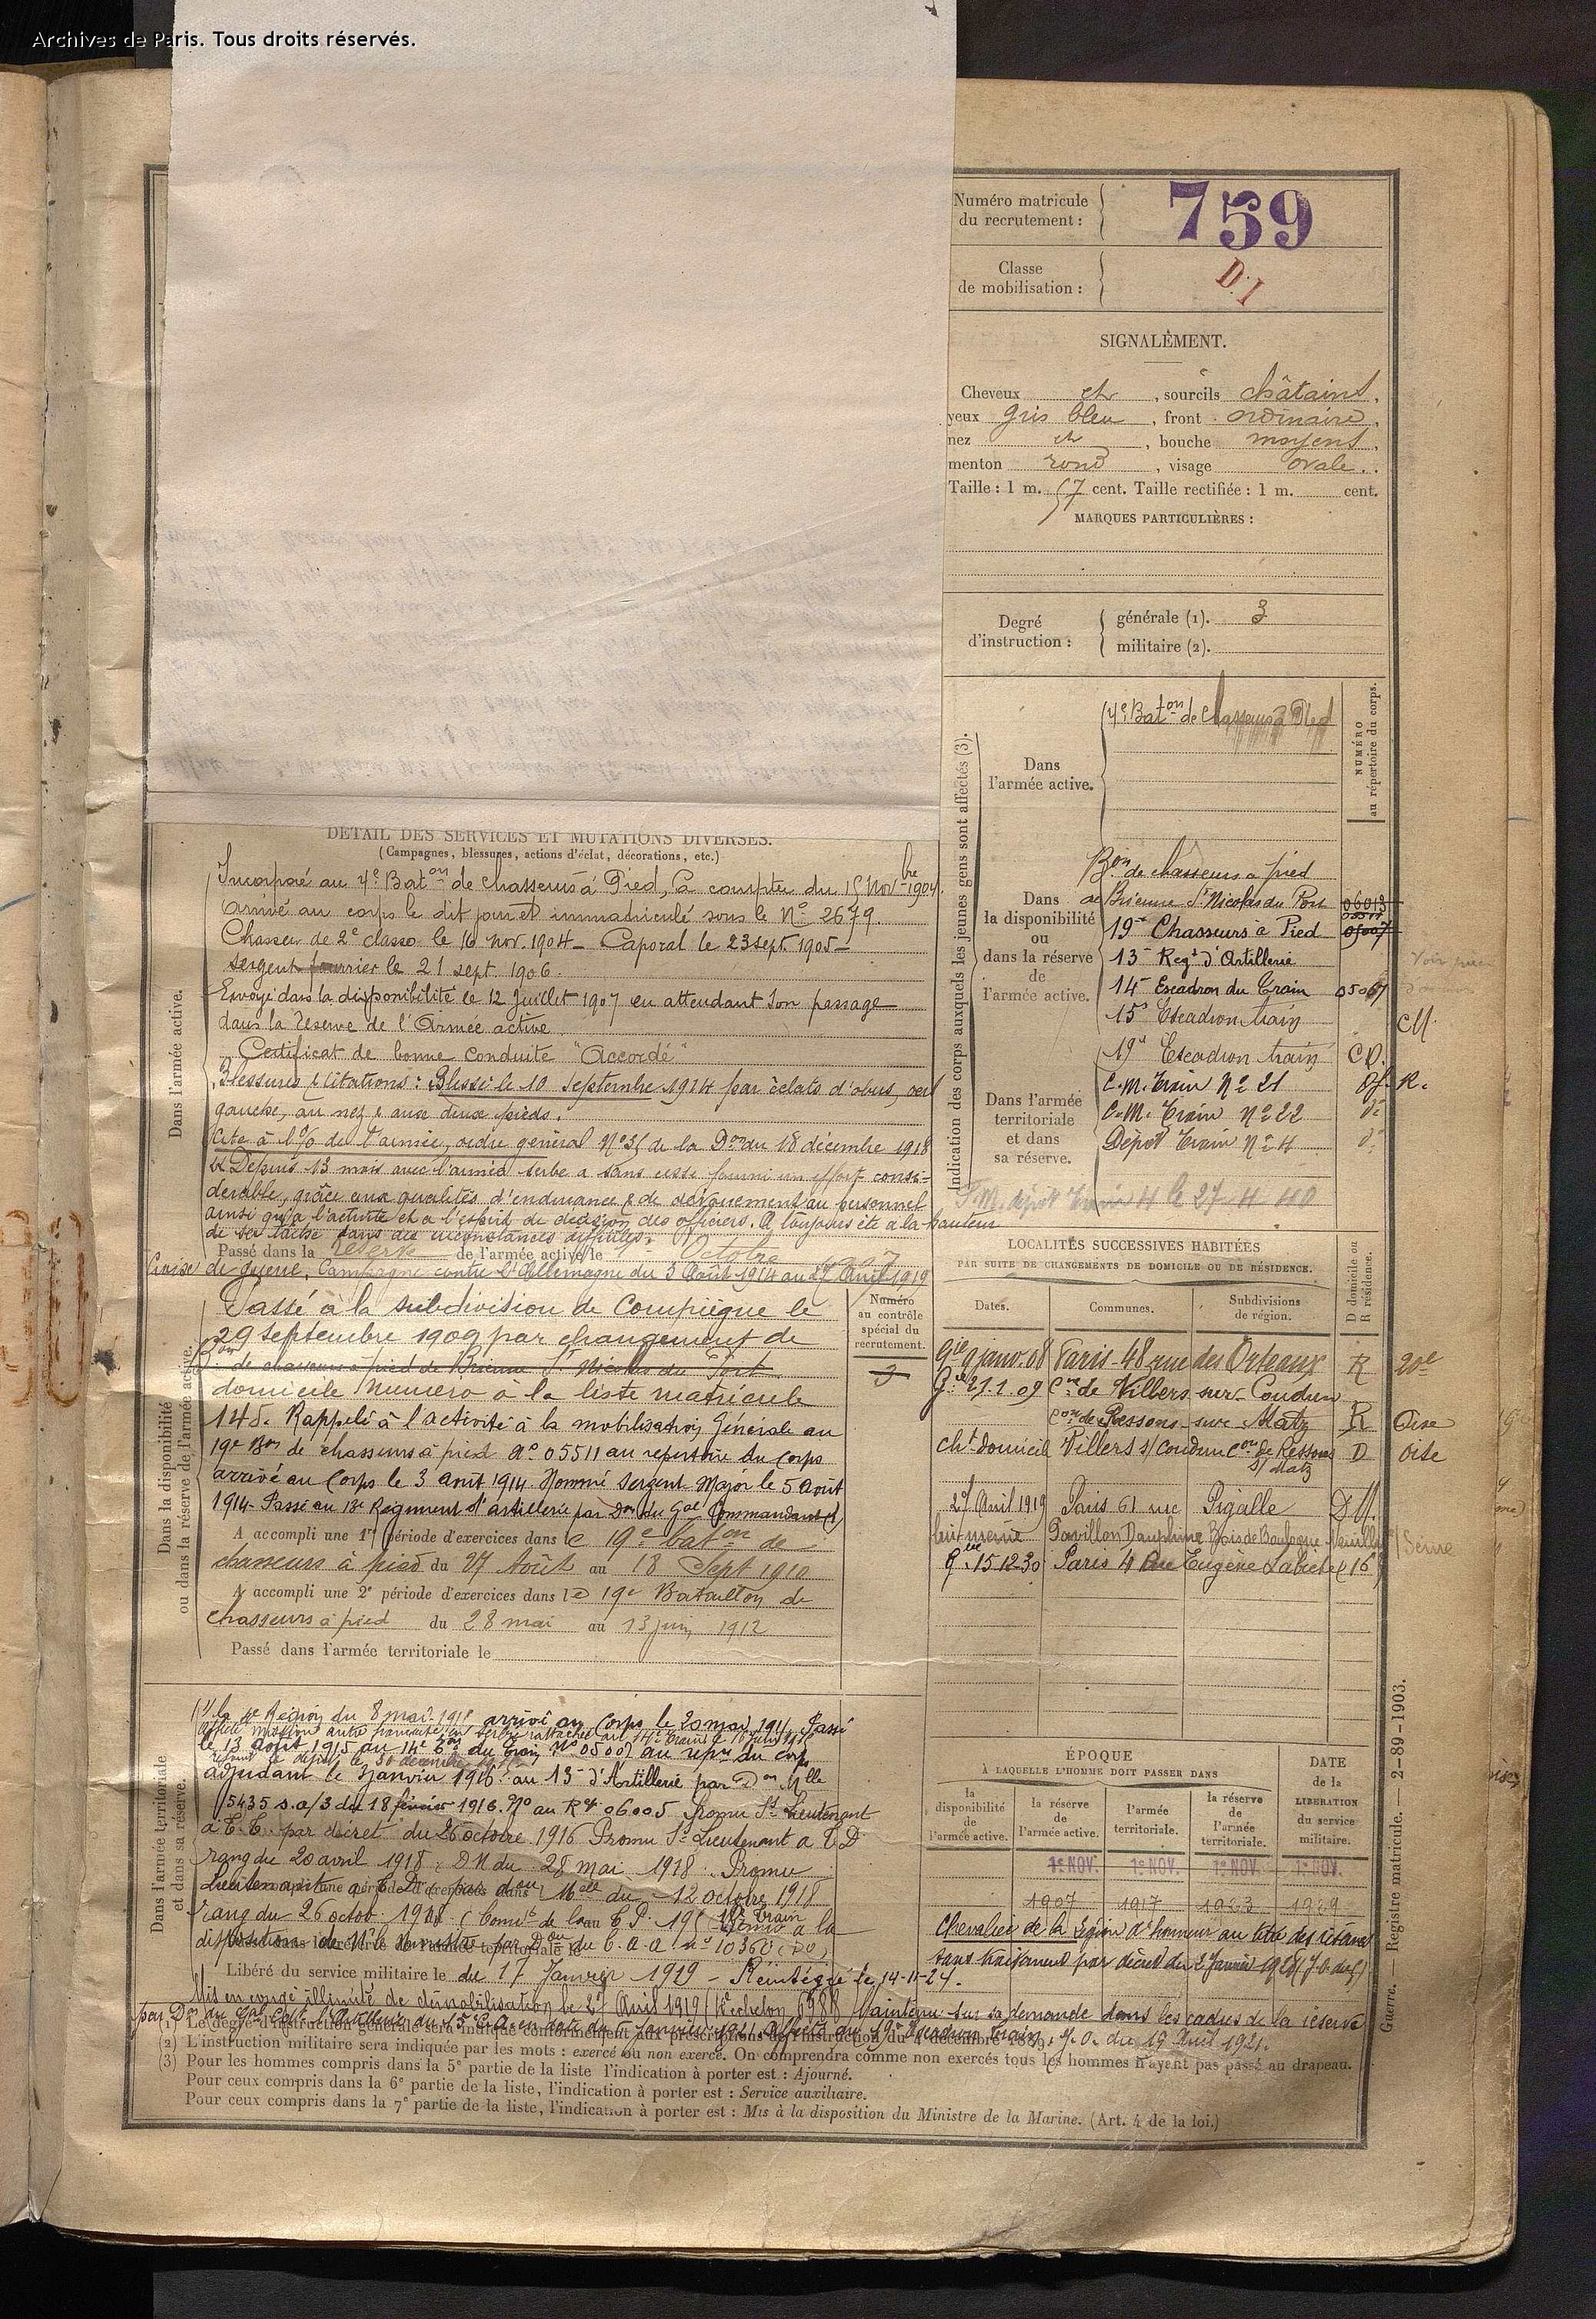 Archives de Paris. Tous droits réservés.
Numéro matricule
du recrutement :
759
Classe
de mobilisation :
D.I
SIGNALEMENT.
Cheveux ch , sourcils châtains.
yeux gris bleu , front ordinaire.
nez , bouche moyens,
menton rond , visage ovale.
Taille : 1 m. 57 cent. Taille rectifiée : 1 m. cent.
MARQUES PARTICULIÈRES :
Degré
d'instruction :
générale (1). 3
militaire (2).
Indication des corps auxquels les jeunes gens sont affectés (3).
NUMÉRO
au répertoire du corps.
Dans
l'armée active.
4e Baton de chasseurs à Pied
Dans
la disponibilité
ou
dans la réserve
de
l'armée active.
Bon de chasseurs à pied
de Brienne St Nicolas du Port 06013
19e Chasseurs à Pied 05007
13e Regt d'Artillerie
14e Escadron du Train 05007
15e Escadron train
CM.
Dans l'armée
territoriale
et dans
sa réserve.
19e Escadron train C.D.
C.M. Train No 21 Of. R.
C.M. Train No 22 do
Dépôt Train No 4 do
dépôt Train 4 le 27-4-40
DÉTAIL DES SERVICES ET MUTATIONS DIVERSES.
(Campagnes, blessures, actions d'éclat, décorations, etc.)
Dans l'armée active.
Incorporé au 4e Baton de chasseurs à Pied, à compter du 15 Novbre 1904.
arrivé au corps le dit jour et immatriculé sous le No 2679.
Chasseur de 2e classe le 16 nov. 1904 - Caporal le 23 sept. 1905 -
Sergent fourrier le 21 sept. 1906.
Envoyé dans la disponibilité le 12 Juillet 1907 en attendant son passage
dans la réserve de l'Armée active.
Certificat de bonne conduite "Accordé"
Blessures & citations : Blessé le 10 septembre 1914 par éclats d'obus, œil
gauche, au nez & aux deux pieds.
Cité à l'% de l'armée, ordre général No 35 de la Don du 18 décembre 1918
Depuis 13 mois avec l'armée serbe a sans cesse fourni un effort consi-
dérable, grâce aux qualités d'endurance & de dévouement du personnel
ainsi qu'à l'activité et à l'esprit de décision des officiers. A toujours été à la hauteur
de sa tâche dans des circonstances difficiles.
Passé dans la réserve de l'armée active le 1er Octobre 1907
Croix de guerre. Campagne contre l'Allemagne du 3 Août 1914 au 27 Avril 1919
Dans la disponibilité
ou dans la réserve de l'armée active.
Numéro
au contrôle
spécial du
recrutement.
Passé à la subdivision de Compiègne le
29 septembre 1909 par changement de
Bon de chasseurs à pied de Brienne St Nicolas du Port
domicile numéro à la liste matricule
145. Rappelé à l'activité à la mobilisation Générale au
19e Bon de chasseurs à pied No 05511 au répertoire du corps
arrivé au Corps le 3 août 1914 Nommé Sergent Major le 5 août
1914 - Passé au 13e Régiment d'artillerie par Don du Gal Commandant
A accompli une 1re période d'exercices dans le 19e baton de
chasseurs à pied du 27 Août au 18 Sept 1910
A accompli une 2e période d'exercices dans le 19e Bataillon de
chasseurs à pied du 28 mai au 13 juin 1912
Passé dans l'armée territoriale le
LOCALITÉS SUCCESSIVES HABITÉES
PAR SUITE DE CHANGEMENTS DE DOMICILE OU DE RÉSIDENCE.
Dates. Communes. Subdivisions
de région.
D domicile ou
R résidence.
9 janv. 08 Paris 48 rue des Orteaux R 20e
21.1.09 Cne de Villers sur Coudun
Con de Ressons sur Matz R Oise
cht domicile Villers s/ Coudun con de Ressons s/ Matz D Oise
27 Avril 1919 Paris 61 rue Pigalle
lui-même Pavillon Dauphine Bois de Boulogne Neuilly Seine
15.12.30 Paris 4 Rue Eugène Labiche (16e)
Dans l'armée territoriale
et dans sa réserve.
la 4e Région du 8 mai 1915 arrivé au Corps le 20 mai 1915 Passé
le 13 août 1915 au 14e Eon du Train No 05007 au repre du corps
adjudant le janvier 1916 au 13e d'Artillerie par Don Mlle
5435 s.a/3 du 18 février 1916. No au Rep. 06005 Promu St Lieutenant
à T.T. par décret du 26 octobre 1916 Promu St Lieutenant à T.D
rang du 20 avril 1918. DM du 28 mai 1918. Promu
Lieutenant à T.D. par don Mlle du 12 octobre 1918
rang du 26 octob. 1918
disposition du Ministre par Don du C.A.A. no 10360 (Do)
Libéré du service militaire le du 17 Janvier 1919 - Réintégré le 14-11-24.
Mis en congé illimité de démobilisation le 27 Avril 1919 Maintenu sur sa demande dans les cadres de la réserve
J.O. du 17 Avril 1921.
ÉPOQUE
À LAQUELLE L'HOMME DOIT PASSER DANS
la
disponibilité
de
l'armée active.
la réserve
de
l'armée active.
l'armée
territoriale.
la réserve
de
l'armée
territoriale.
DATE
de la
LIBÉRATION
du service
militaire.
1er NOV. 1er NOV. 1er NOV. 1er NOV.
1907 1917 1923 1929
Chevalier de la Légion d'honneur au titre des réserves
sans traitement par décret du 2 Janvier
(1) Le degré d'instruction générale sera indiqué conformément aux prescriptions de l'instruction du 4 décembre 1889.
(2) L'instruction militaire sera indiquée par les mots : exercé ou non exercé. On comprendra comme non exercés tous les hommes n'ayant pas passé au drapeau.
(3) Pour les hommes compris dans la 5e partie de la liste l'indication à porter est : Ajourné.
Pour ceux compris dans la 6e partie de la liste, l'indication à porter est : Service auxiliaire.
Pour ceux compris dans la 7e partie de la liste, l'indication à porter est : Mis à la disposition du Ministre de la Marine. (Art. 4 de la loi.)
Guerre. — Registre matricule. — 2-89-1903.